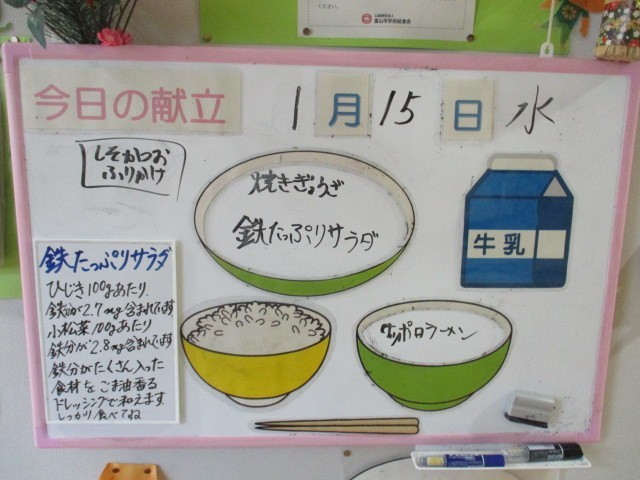 公益財団法人
富山市学校給食会
今日の献立 1月15日 水
しそかつお
ふりかけ
焼きぎょうざ
鉄たっぷりサラダ
牛乳
鉄たっぷりサラダ
ひじき100gあたり、
鉄分が2.7mg含まれています
小松菜100gあたり
鉄分が2.8mg含まれています
鉄分がたくさん入った
食材をごま油香る
ドレッシングで和えます
しっかり食べてね
サッポロラーメン